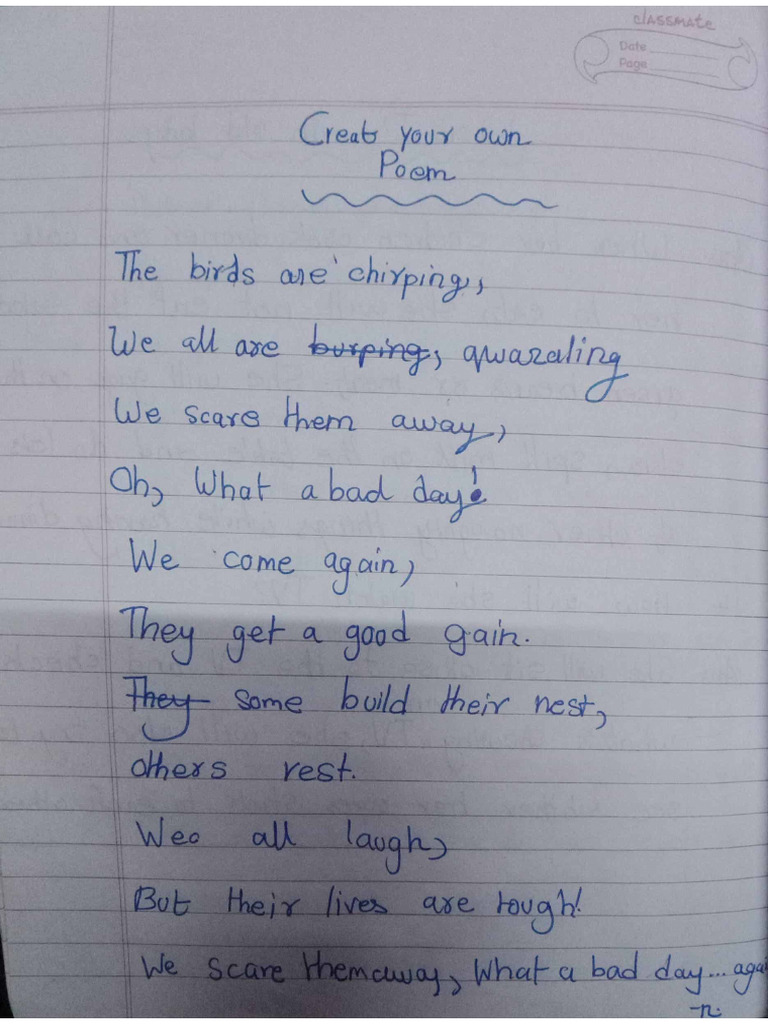 classmate
Date
Page
Creat your own
Poem
The birds are chirping,
We all are burping, qwaraling
We scare them away,
Oh, What a bad day!
We come again,
They get a good gain.
They some build their nest,
others rest.
Weo all laugh,
But their lives are tough!
We scare them away, What a bad day... agai
-n.